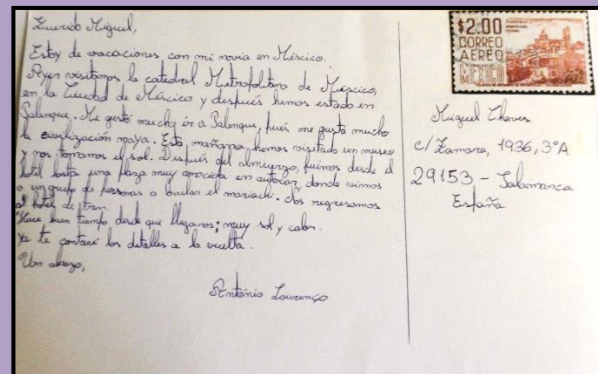 Querido Miguel,
Estoy de vacaciones con mi novia en México.
Ayer visitamos la catedral Metropolitana de México,
en la Ciudad de México y después hemos estado en
Palenque. Me gustó mucho ir a Palenque, pués me gusta mucho
la civilización maya. Esta mañana hemos visitado un museo
y nos tomamos el sol. Después del almuerzo, fuimos desde el
hotel hasta una plaza muy conocida en autocar, donde vimos
a un grupo de personas a bailar el mariachi. Nos regresamos
al hotel de tren.
Hace buen tiempo desde que llegamos; muy sol y calor.
Ya te contaré los detalles a la vuelta.
Un abrazo,
António Lourenço
$2.00
CORREO
AEREO
MEXICO
Miguel Chaves
c/ Zamora, 1936, 3ºA
29153 - Salamanca
España